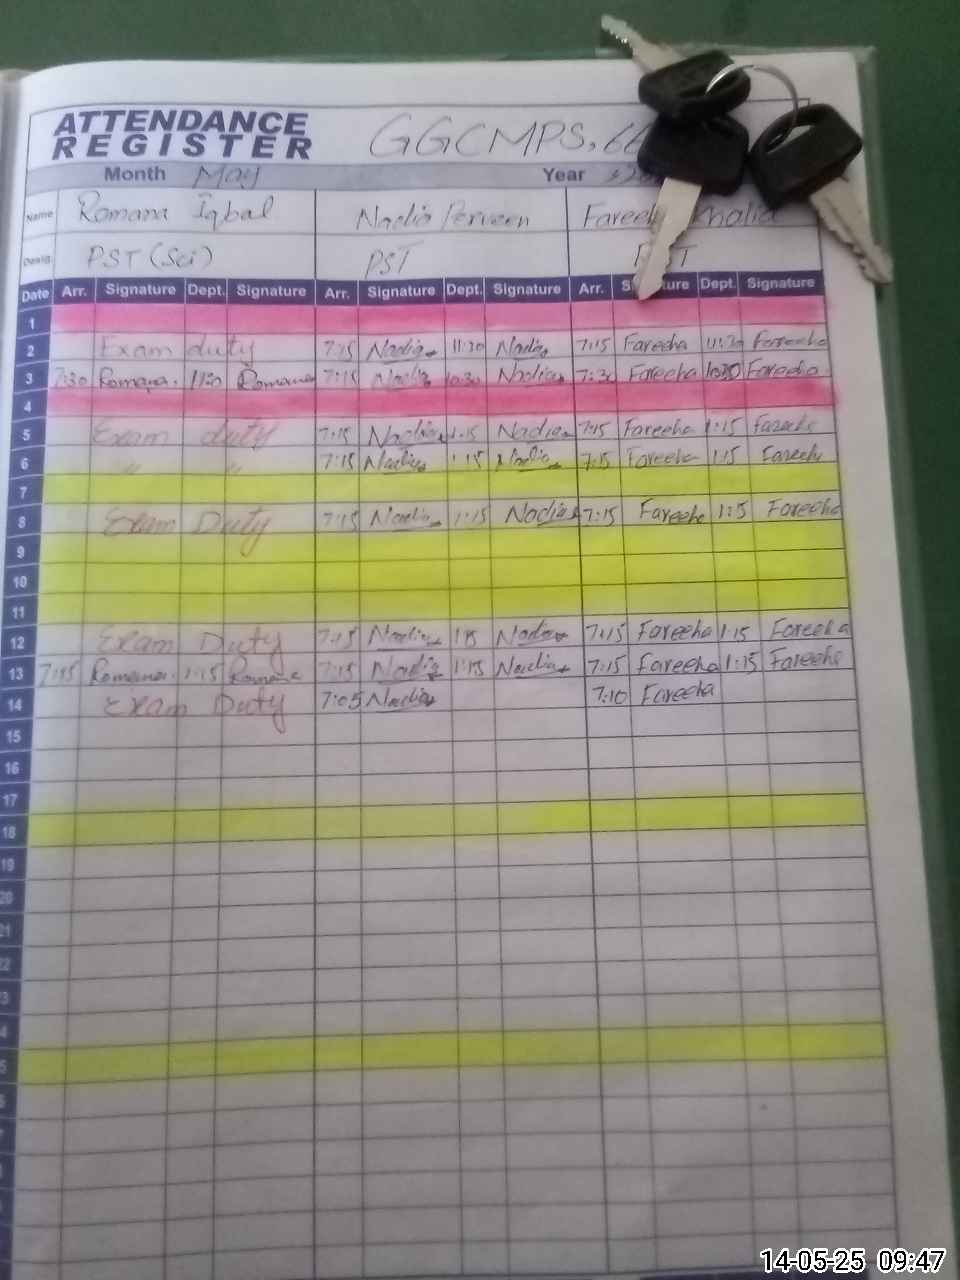 ATTENDANCE
REGISTER GGCMPS, 66
Month May Year
Name Romana Iqbal Nadia Perveen Fareeha Khalid
Desig. PST (Sci) PST PST
Date Arr. Signature Dept. Signature Arr. Signature Dept. Signature Arr. Signature Dept. Signature
1
2 Exam duty 7:15 Nadia 11:30 Nadia 7:15 Fareeha 11:30 Fareeha
3 7:30 Romana. 11:30 Romana 7:15 Nadia 10:30 Nadia 7:30 Fareeha 10:30 Fareeha
4
5 Exam duty 7:15 Nadia 1:15 Nadia 7:15 Fareeha 1:15 Fareeha
6 " " 7:15 Nadia 1:15 Nadia 7:15 Fareeha 1:15 Fareeha
7
8 Exam Duty 7:15 Nadia 1:15 Nadia 7:15 Fareeha 1:15 Fareeha
9
10
11
12 Exam Duty 7:15 Nadia 1:15 Nadia 7:15 Fareeha 1:15 Fareeha
13 7:15 Romana. 1:15 Romana 7:15 Nadia 1:15 Nadia 7:15 Fareeha 1:15 Fareeha
14 Exam Duty 7:05 Nadia 7:10 Fareeha
15
16
17
18
19
20
21
22
23
14-05-25 09:47